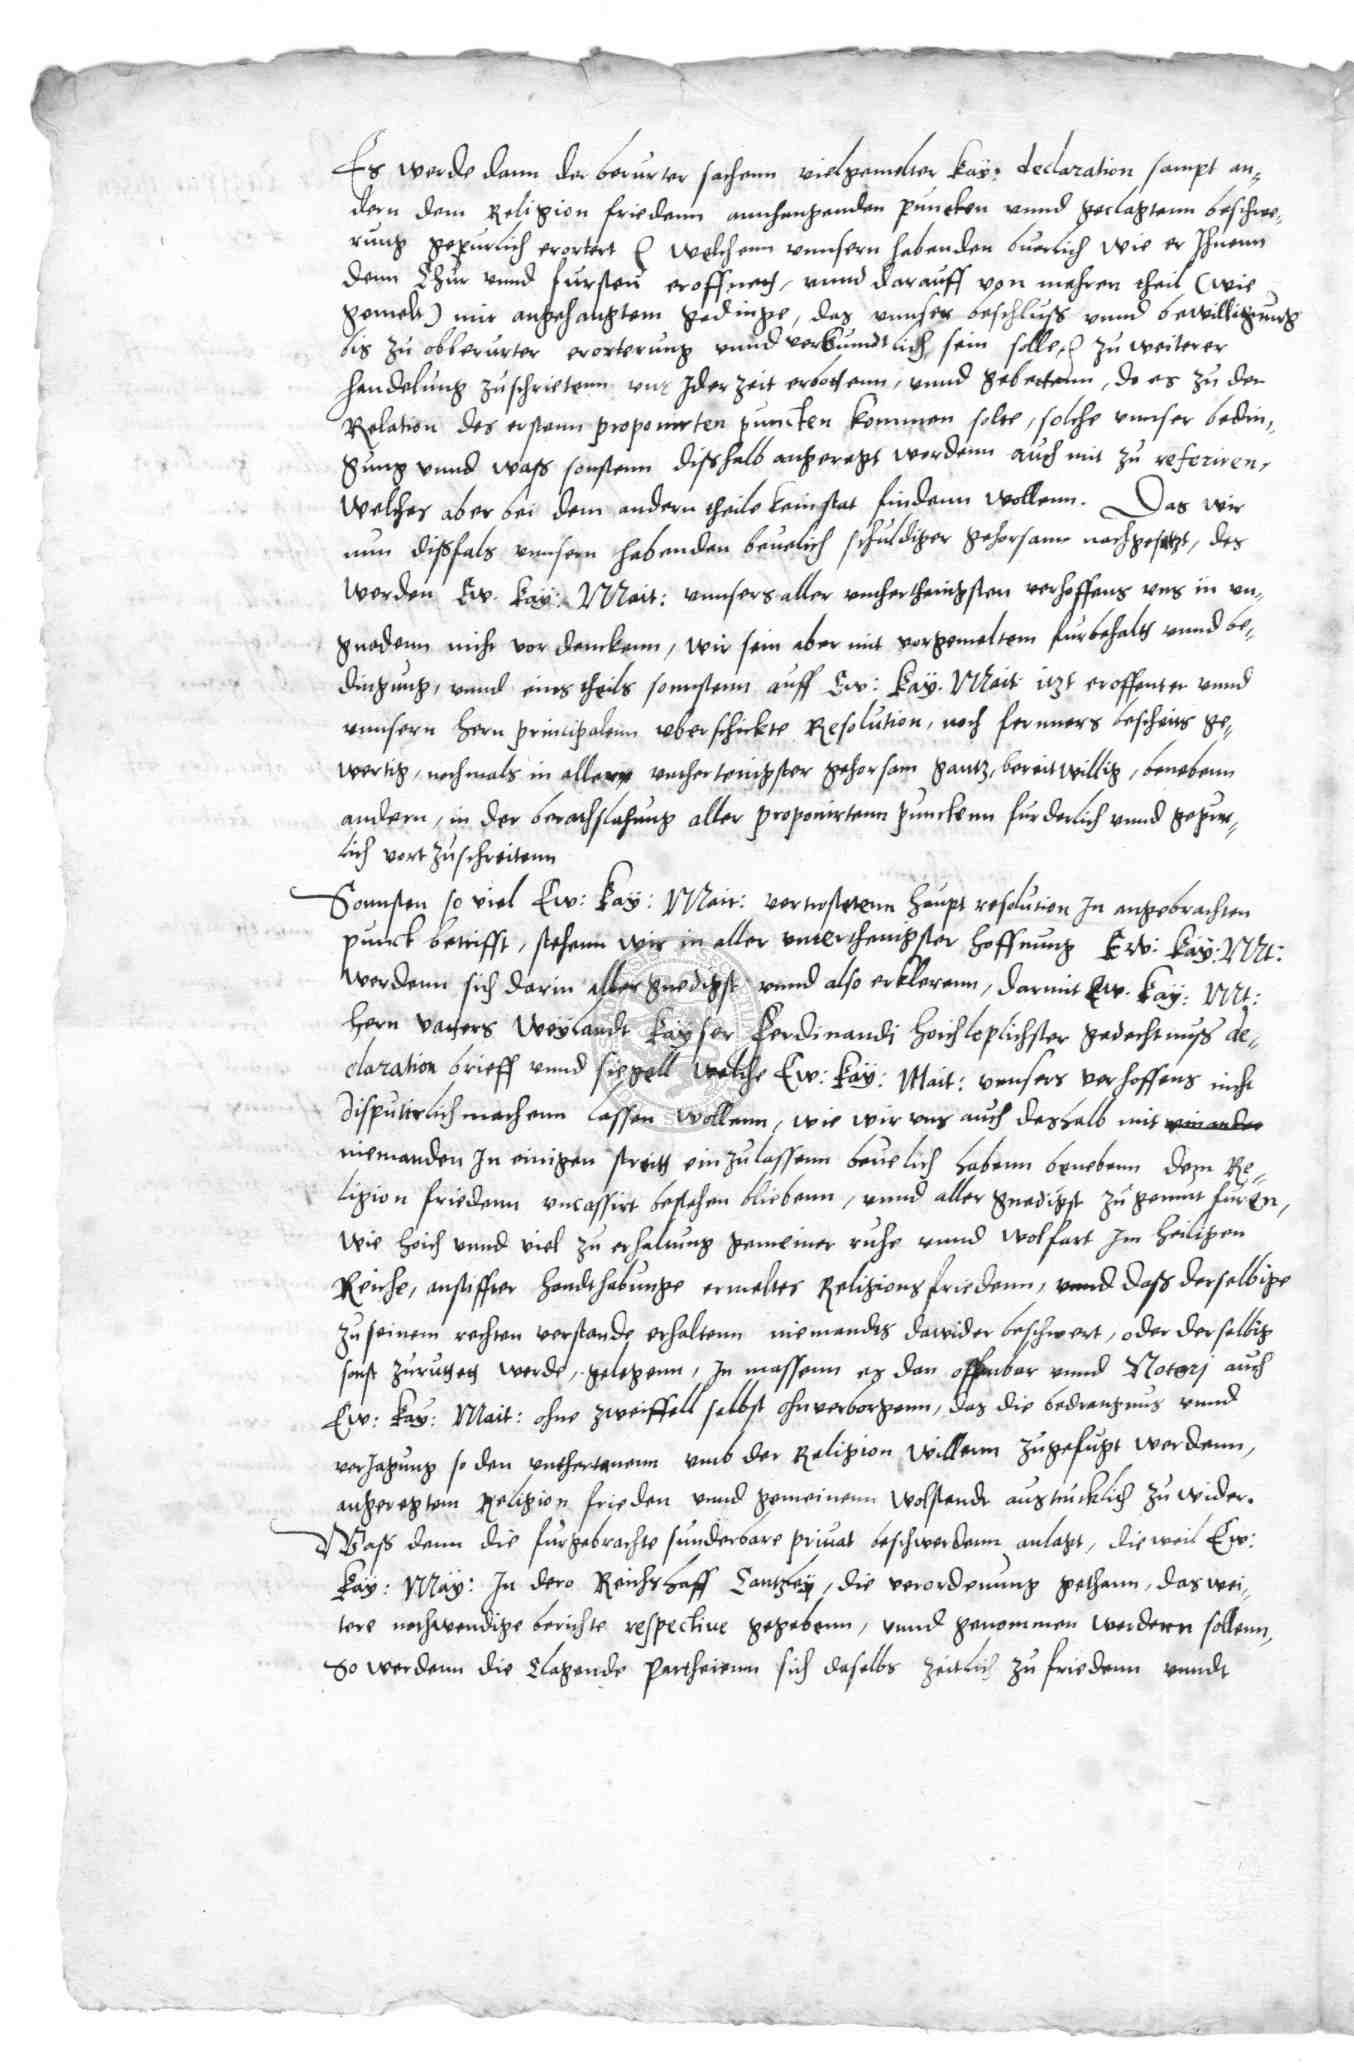 Es werde dann der berurter sachenn vielgemelter Kay: declaration sampt an=
dern dem Religion friedenn annhangenden puncken vnnd geclagtenn beschwe=
rung gepurlich erortert welchenn vnnsern habenden beuelich wie er Ihnenn
denn Chur vnnd fursten eroffneth, vnnd darauff von mehren theil (wie
gemelt) mit angehangtem gedinge, das vnnser beschluss vnnd bewilligung
bis zu obberurter erorterung vnnd verbundtlich sein solle, zu weiterer
handelung zuschrietenn vns Jder zeit erbothenn, vnnd gebettenn, do es zu der
Relation des erstenn proponirten puncten kommen solte, solche vnnser bedin=
gung vnnd wass sonstenn disshalb angeregt werdenn auch mit zu referiren,
Welches aber bei dem andern theile kein stat findenn wollenn. Das wir
nun dissfals vnnsern habenden beuelich schuldiger gehorsame nachgesetzt, des
werden Ew. Kay: Mait: vnnsers aller vnderthenigsten verhoffens vns in vn=
gnadenn nicht vordenckenn, wir sein aber mit vorgemeltem furbehalt vnnd be=
dingung, vnnd eins theils sonnstenn auff Ew: Kay. Mait itzt eroffenter vnnd
vnnsern hern principalenn vberschickte Resolution, noch fernners bescheits ge=
wertig, nochmals in aller vnthertenigster gehorsam gantz, bereit willig, benebenn
andern, in der berathschlagung aller proponirtenn punckenn furderlich vnnd gepur=
lich vort zuschreitenn
Sonnsten so viel Ew: Kay: Mait: vertrostetenn haupt resolution In angebrachten
punck betrifft, stehenn wir in aller vnterthenigster hoffnung Ew: Kay: Mt:
werdenn sich darin aller gnedigst vnnd also erklerenn, darmit Ew. Kay: Mt:
hern vatters Weylandt Kayser Ferdinandi hoichloplichster gedechtnuss de=
claration brieff vnnd siegell welche Ew: Kay: Mait: vnnsers verhoffens nicht
disputirlich machenn lassen wollenn, wie wir vns auch deshalb mit
niemanden In einigen streith einzulassenn beuelich habenn benebenn dem Re=
ligion friedenn vncassirt bestehen bliebenn, vnnd aller gnedigst zu gemut furen,
wie hoich vnnd viel zu erhaltung gemeiner ruhe vnnd wolfart Im heiligen
Reiche, an stiffter handthabunge ermeltes Religions friedenn, vnnd dass derselbige
zu seinem rechten verstande erhaltenn niemandts dawider beschwert, oder derselbig
sonst zerutteth werde, gelegenn, In massenn es dan offenbar vnnd Notorj auch
Ew: Kay: Mait: ohne zweiffell selbst ohnverborgenn, das die bedrangnus vnnd
verJagung so den vnthertanenn vmb der Religion willenn zugefugt werdenn,
angeregtem Religion frieden vnnd gemeinenn wolstande austrucklich zu wider.
Wass denn die furgebrachte sunderbare priuat beschwerdenn anlagt, die weil Ew:
Kay: May: In dero Reichshoff Cantzley, die verordenung gethann, das wei=
tere nothwendige berichte respectiue gegebenn, vnnd genommen werdenn sollenn,
So werdenn die Clagende Partheienn sich daselbs zeitlich zu friedenn vnndt